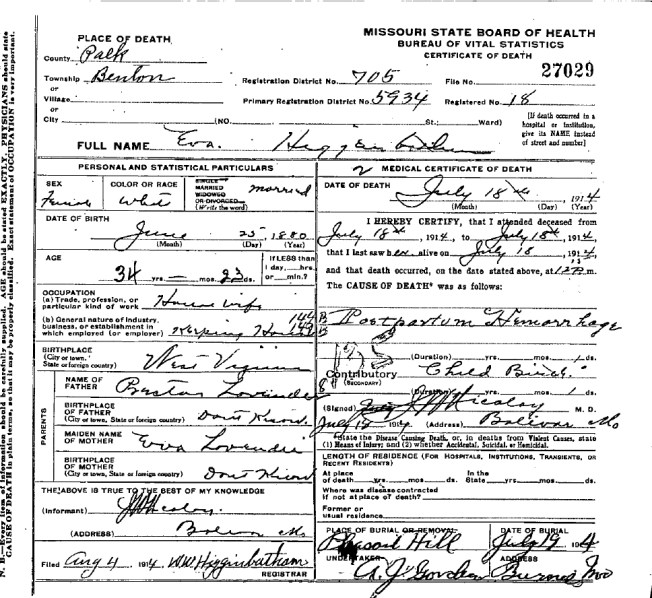 MISSOURI STATE BOARD OF HEALTH
BUREAU OF VITAL STATISTICS
CERTIFICATE OF DEATH
PLACE OF DEATH
County Polk
Township Benton
or
Village
or
City (NO. St.; Ward)
Registration District No. 705 File No. 27029
Primary Registration District No. 5934 Registered No. 18
[If death occurred in a
hospital or institution,
give its NAME instead
of street and number]
FULL NAME Eva
PERSONAL AND STATISTICAL PARTICULARS
SEX
Female
COLOR OR RACE
White
SINGLE
MARRIED
WIDOWED
OR DIVORCED
(Write the word)
Married
DATE OF BIRTH
June 25 1880
(Month) (Day) (Year)
AGE
34 yrs. — mos. 23 ds.
If LESS than
1 day, hrs.
or min.?
OCCUPATION
(a) Trade, profession, or
particular kind of work House wife
(b) General nature of industry,
business, or establishment in
which employed (or employer) Keeping House
BIRTHPLACE
(City or town,
State or foreign country) West Virginia
PARENTS
NAME OF
FATHER
BIRTHPLACE
OF FATHER
(City or town, State or foreign country) Dont Know
MAIDEN NAME
OF MOTHER Eva
BIRTHPLACE
OF MOTHER
(City or town, State or foreign country) Dont Know
THE ABOVE IS TRUE TO THE BEST OF MY KNOWLEDGE
(Informant)
(ADDRESS) Bolivar Mo
Filed Aug 4 1914 W.W. Higginbotham
REGISTRAR
2 MEDICAL CERTIFICATE OF DEATH
DATE OF DEATH
July 18th, 1914
(Month) (Day) (Year)
I HEREBY CERTIFY, that I attended deceased from
July 18th, 1914, to July 18th, 1914
that I last saw her alive on July 18, 1914,
and that death occurred, on the date stated above, at m.
The CAUSE OF DEATH* was as follows:
Postpartum Hemorrhage
(Duration) yrs. mos. 1 ds.
Contributory Child Birth
(SECONDARY)
(Duration) yrs. mos. 1 ds.
(Signed) M. D.
July 18 1914 (Address) Bolivar Mo
*State the Disease Causing Death, or, in deaths from Violent Causes, state
(1) Means of Injury; and (2) whether Accidental, Suicidal, or Homicidal.
LENGTH OF RESIDENCE (FOR HOSPITALS, INSTITUTIONS, TRANSIENTS, OR
RECENT RESIDENTS)
At place
of death yrs. mos. ds.
In the
State yrs. mos. ds.
Where was disease contracted
if not at place of death?
Former or
usual residence
PLACE OF BURIAL OR REMOVAL
Pleasant Hill
DATE OF BURIAL
July 19 1914
UNDERTAKER
A. J. Gordon
ADDRESS
Burns Mo
N. B.—Every item of information should be carefully supplied. AGE should be stated EXACTLY. PHYSICIANS should state
CAUSE OF DEATH in plain terms, so that it may be properly classified. Exact statement of OCCUPATION is very important.